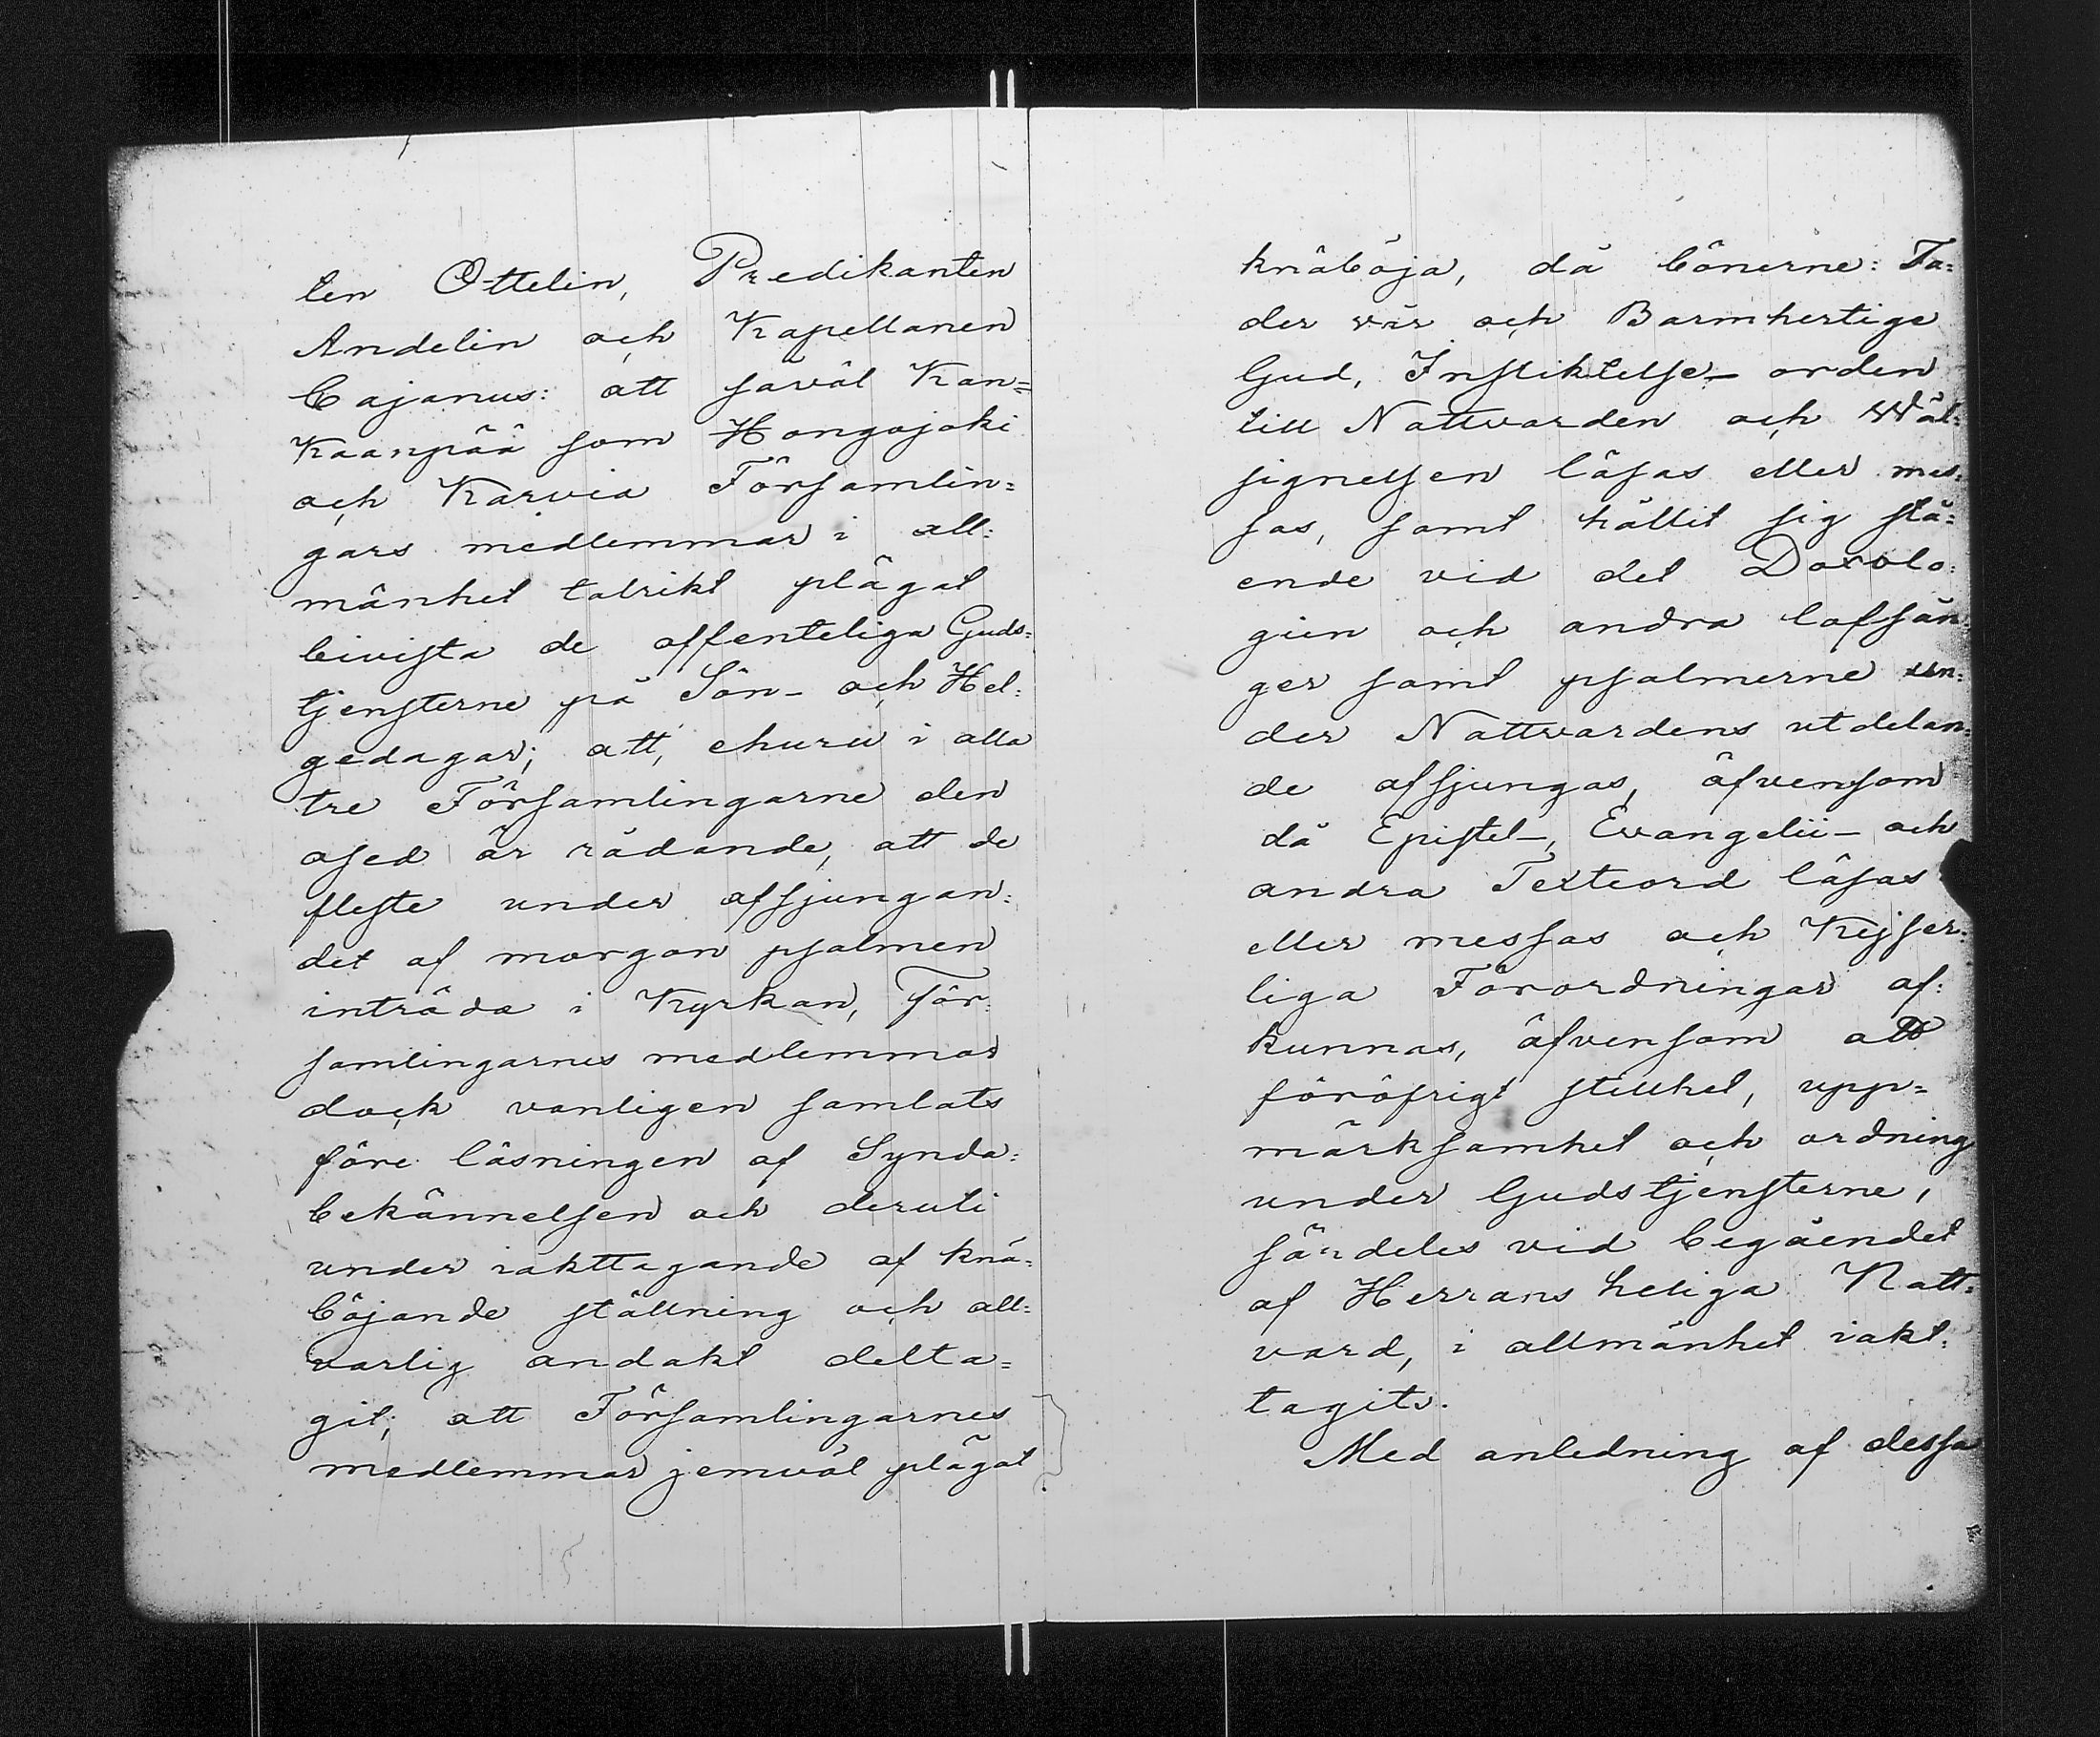 ten Ottelin, Predikanten
Andelin och Kapellanen
Cajanus: att såväl Kan=
Kaanpää som Hongojoki
och Karvia Församlin=
gars medlemmar i all=
mänhet talrikt plägat
bivista de offenteliga Guds=
tjensterne på Sön- och Hel=
gedagar; att, ehuru i alla
tre Församlingarne den
osed är rådande, att de
fleste under afsjungan=
det af morgon psalmen
inträda i Kyrkan, För=
samlingarnes medlemmar
dock vanligen samlats
före läsningen af Synda=
bekännelsen och deruti
under iakttagande af knä=
böjande ställning och all=
varlig andakt delta=
git; att Församlingarnes
medlemmar jemväl plägat
knäböja, då bönerne: Fa=
der vår och Barmhertige
Gud, Instiktelse- orden
till Nattvarden och Wäl=
signelsen läsas eller mes=
sas, samt hållit sig stå=
ende vid det Doxolo=
gien och andra lofsån=
ger samt psalmerne un=
der Nattvardens utdelan=
de afsjungas, äfvensom
då Epistel-, Evangelii- och
andra Texteord läsas
eller messas och Kejser=
liga Förordningar af=
kunnas, äfvensom att
föröfrigt stillhet, upp=
märksamhet och ordning
under Gudstjensterne,
särdeles vid begåendet
af Herrans heliga Natt=
vard, i allmänhet iakt=
tagits.
Med anledning af dessa